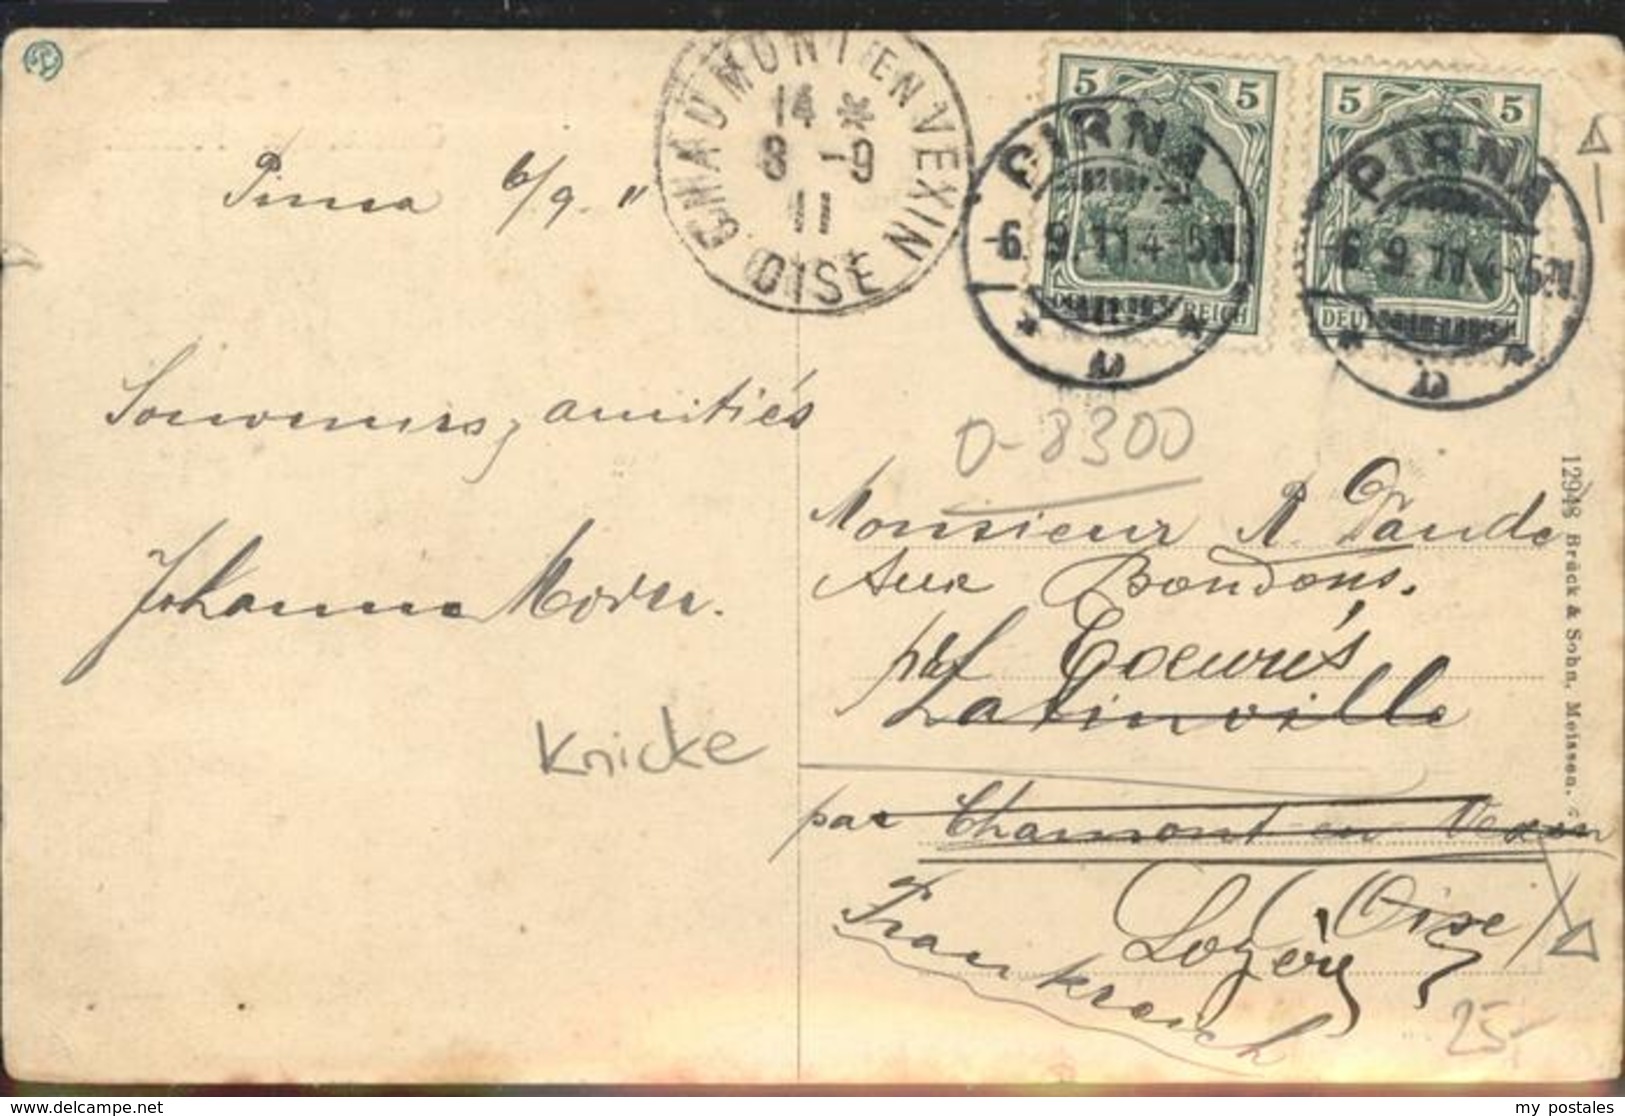 CHAUMONT-EN-VEXIN
14 *
8 -9
11
(OISE)
5 5
DEUTSCHES REICH
PIRNA
-6. 9. 11 4-5N.
* b *
5 5
DEUTSCHES REICH
PIRNA
-6. 9. 11 4-5N.
* b *
Pirna 6/9. 11
Souvenirs, amitiés
Johanna
Knicke
O-8300
Monsieur R.
Aux Bondons.
par Cocurès
Latinville
par Chaumont en Vexin
(Oise)
Lozère
Frankreich
25,-
12948 Brück & Sohn, Meissen.
my postales